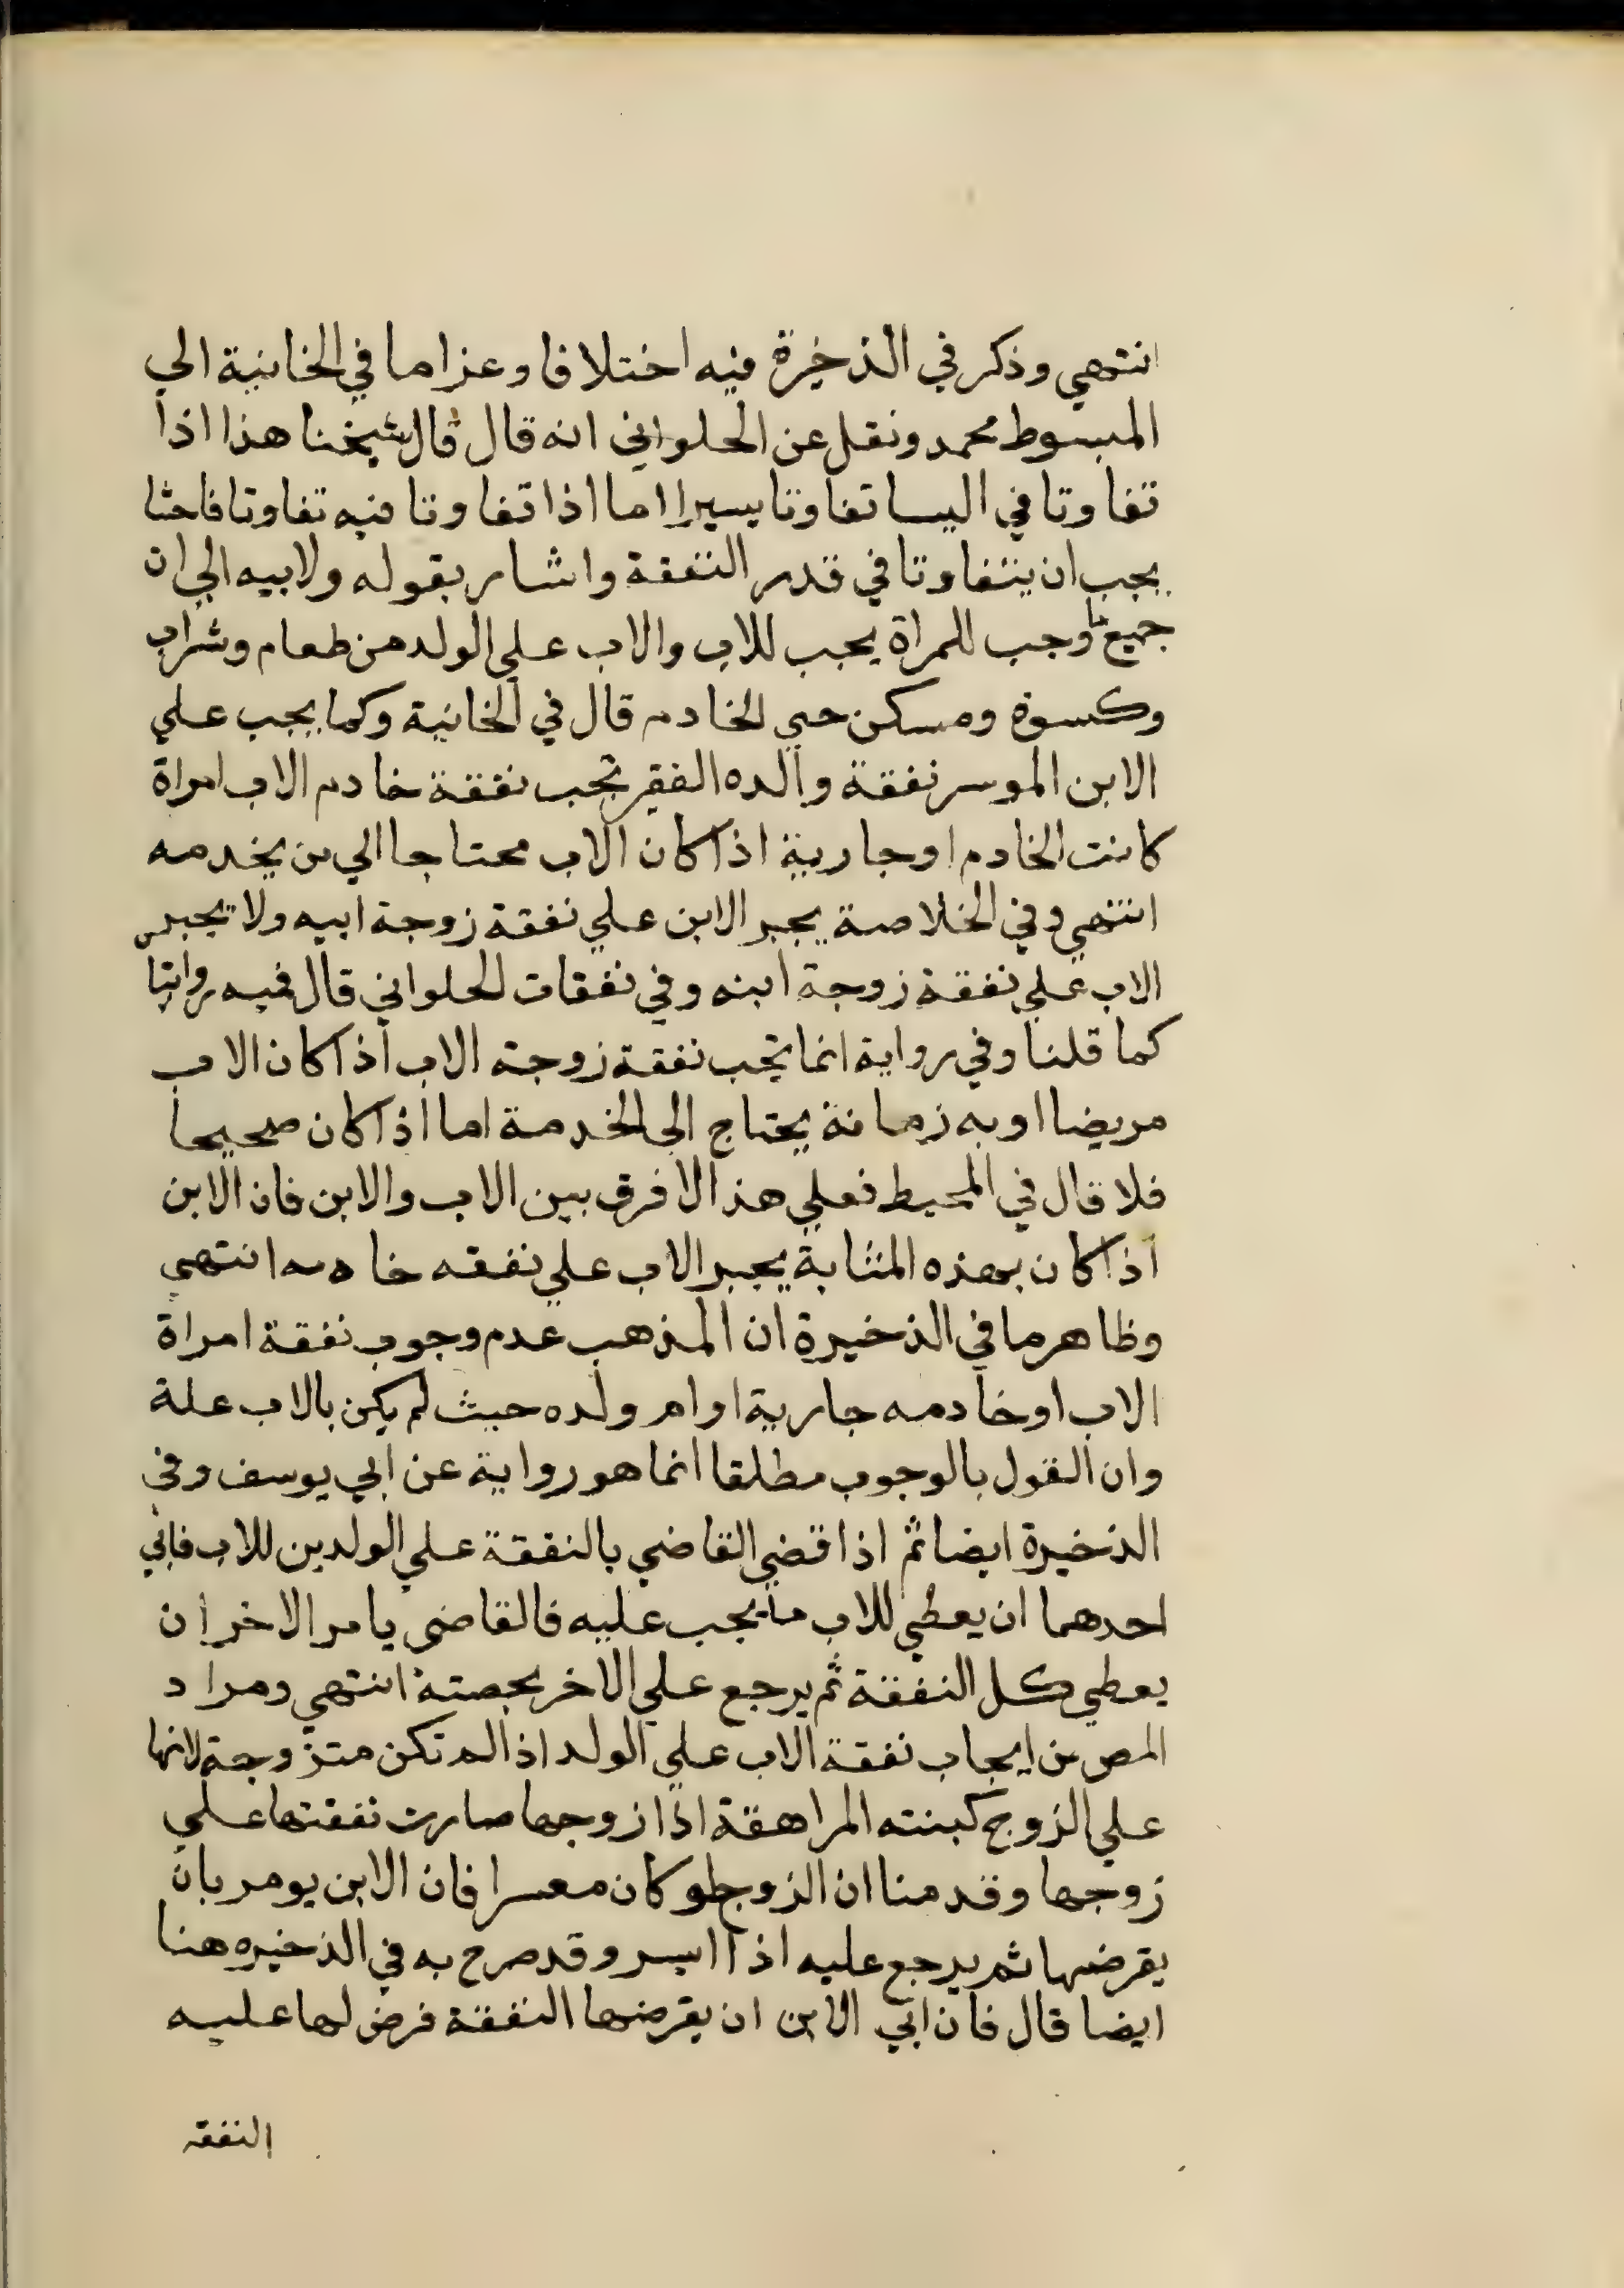 انتهي وذكر في الذخيرة فيه اختلافا وعزا ما في الخانية الي
المبسوط محمد ونقل عن الحلواني انه قال قال شيخنا هذا اذا
تفاوتا في اليسا تفاوتا يسيرا اما اذا تفاوتا فيه تفاوتا فاحشا
يجب ان يتفاوتا في قدر النفقة واشار بقوله ولابيه الي ان
جميع ما وجب للمراة يجب للاب والاب علي الولد من طعام وشراب
وكسوة ومسكن حبي الخادم قال في الخانية وكما يجب علي
الابن الموسر نفقة والده الفقير تجب نفقة خادم الاب امراة
كانت الخادم او جارية اذا كان الاب محتاجا الي من يخدمه
انتهي وفي الخلاصة يجبر الابن علي نفقة زوجة ابيه ولا يجبر
الاب علي نفقة زوجة ابنه وفي نفقات الحلواني قال فيه روايتا
كما قلنا وفي رواية انما تجب نفقة زوجة الاب اذا كان الاب
مريضا او به زمانة يحتاج الي الخدمة اما اذا كان صحيحا
فلا قال في المحيط فعلي هذا لا فرق بين الاب والابن فان الابن
اذا كان بهذه المثابة يجبر الاب علي نفقه خادمه انتهي
وظاهر ما في الذخيرة ان المذهب عدم وجوب نفقة امراة
الاب او خادمه جارية او ام ولده حيث لم يكن بالاب علة
وان القول بالوجوب مطلقا انما هو رواية عن ابي يوسف وفي
الذخيرة ايضا ثم اذا قضي القاضي بالنفقة علي الولدين للاب فابي
احدهما ان يعطي للاب ما يجب عليه فالقاضي يامر الاخر ان
يعطي كل النفقة ثم يرجع علي الاخر بحصته انتهي ومراد
المص من ايجاب نفقة الاب علي الولد اذا لم تكن متزوجة لانها
علي الزوج كبنته المراهقة اذا زوجها صارت نفقتها علي
زوجها وقدمنا ان الزوج لو كان معسرا فان الابن يومر بان
يقرضها ثم يرجع عليه اذا ايسر وقد صرح به في الذخيره هنا
ايضا قال فان ابي الابن ان يقرضها النفقة فرض لها عليه
النفقه